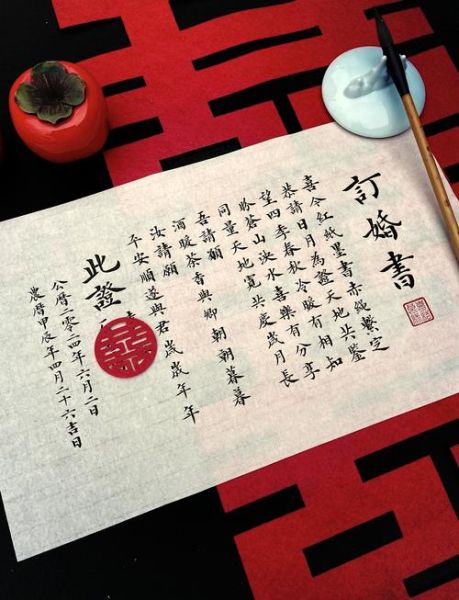 訂婚書
喜今紅紙墨書赤繩繫定
恭請日月為證天地共鑒
望四季春秋冷暖有相知
盼蒼山泱水喜樂有分享
同量天地寬共度歲月長
吾請願
酒暖茶香與卿朝朝暮暮
汝請願
平安順遂與君歲歲年年
此證
囍
公曆二零二四年六月二日
農曆甲辰年四月二十六吉日